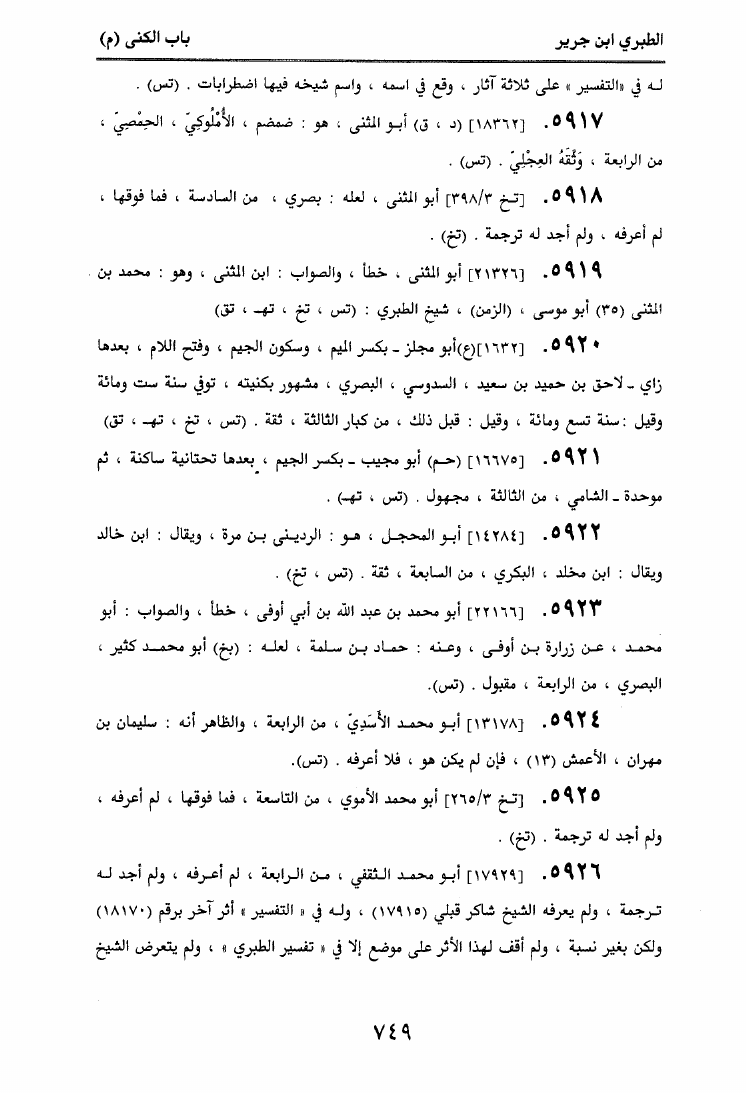 الطبري ابن جرير
باب الكنى (م)
لـه في «التفسير» على ثلاثة آثار ، وقع في اسمه ، واسم شيخه فيها اضطرابات . (تس) .
٥٩١٧. [١٨٣٦٢] (د ، ق) أبـو المثنى ، هو : ضمضم ، الأُمْلُوكِيّ ، الحِمْصِيّ ،
من الرابعة ، وَثَّقَهُ العِجْلِيّ . (تس) .
٥٩١٨. [تـخ ٣٩٨/٣] أبو المثنى ، لعله : بصري ، من السادسة ، فما فوقها ،
لم أعرفه ، ولم أجد له ترجمة . (تخ) .
٥٩١٩. [٢١٣٢٦] أبو المثنى ، خطأ ، والصواب : ابن المثنى ، وهو : محمد بن
المثنى (٣٥) أبو موسى ، (الزمن) ، شيخ الطبري : (تس ، تخ ، تهـ ، تق)
٥٩٢٠. [١٦٣٢](ع)أبو مجلز ـ بكسر الميم ، وسكون الجيم ، وفتح اللام ، بعدها
زاي ـ لاحق بن حميد بن سعيد ، السدوسي ، البصري ، مشهور بكنيته ، توفي سنة ست ومائة
وقيل :سنة تسع ومائة ، وقيل : قبل ذلك ، من كبار الثالثة ، ثقة . (تس ، تخ ، تهـ ، تق)
٥٩٢١. [١٦٦٧٥] (حـم) أبو مجيب ـ بكسر الجيم ، بعدها تحتانية ساكنة ، ثم
موحدة ـ الشامي ، من الثالثة ، مجهول . (تس ، تهـ) .
٥٩٢٢. [١٤٢٨٤] أبـو المحجـل ، هـو : الردينـى بـن مرة ، ويقال : ابن خالد
ويقال : ابن مخلد ، البكري ، من السابعة ، ثقة . (تس ، تخ) .
٥٩٢٣. [٢٢١٦٦] أبو محمد بن عبد الله بن أبي أوفى ، خطأ ، والصواب : أبو
محمـد ، عـن زرارة بـن أوفـى ، وعنـه : حمـاد بـن سـلمة ، لعلـه : (بخ) أبو محمـد كثير ،
البصري ، من الرابعة ، مقبول . (تس).
٥٩٢٤. [١٣١٧٨] أبـو محمـد الأَسَدِيّ ، من الرابعة ، والظاهر أنه : سليمان بن
مهران ، الأعمش (١٣) ، فإن لم يكن هو ، فلا أعرفه . (تس).
٥٩٢٥. [تـخ ٢٦٥/٣] أبو محمد الأموي ، من التاسعة ، فما فوقها ، لم أعرفه ،
ولم أجد له ترجمة . (تخ) .
٥٩٢٦. [١٧٩٢٩] أبـو محمـد الـثقفي ، مـن الـرابعة ، لم أعـرفه ، ولم أجد لـه
تـرجمة ، ولم يعرفه الشيخ شاكر قبلي (١٧٩١٥) ، ولـه في « التفسير » أثر آخر برقم (١٨١٧٠)
ولكن بغير نسبة ، ولم أقف لهذا الأثر على موضع إلا في « تفسير الطبري » ، ولم يتعرض الشيخ
٧٤٩